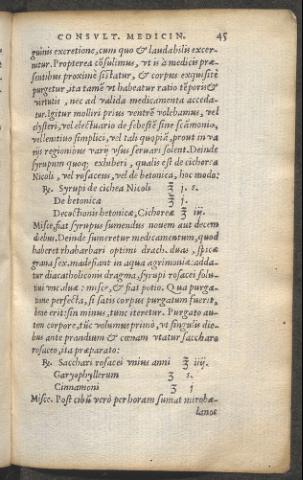 CONSVLT. MEDICIN. 45
guinis excretione, cum quo & laudabilis excer-
nitur. Propterea cōsulimus, vt is à medicis præ-
sentibus proximè siītatur, & corpus exquisitè
purgetur, ita tamē vt habeatur ratio tēporis &
virtutis, nec ad valida medicamenta acceda-
tur. Igitur molliri prius ventrē volebamus, vel
clysteri, vel electuario de sebestē sine scāmonio,
vel lenitiuo simplici, vel tali quopiā, prout in va
riis regionibus varij vsus seruari solent. Deinde
syrupum quoq; exhiberi, qualis est de cichorea
Nicoli, vel rosaceus, vel de betonica, hoc modo:
℞. Syrupi de cichea Nicoli ℥ j. s.
De betonica ℥ j.
Decoctionis betonicæ, Cichoreæ ℥ iij.
Misce, fiat syrupus sumendus nouem aut decem
diebus. Deinde sumeretur medicamentum, quod
haberet rhabarbari optimi drach. duas, spicæ
grana sex, madefiant in aqua agrimoniæ: adda-
tur diacatholiconis dragma, syrupi rosacei solu-
tiui vnc. duæ: misce, & fiat potio. Qua purga-
tione perfecta, si satis corpus purgatum fuerit,
bene erit: sin minus, tunc iteretur. Purgato au-
tem corpore, tūc volumus primò, vt singulis die-
bus ante prandium & cœnam vtatur saccharo
rosaceo, ita præparato:
℞. Sacchari rosacei vnius anni ℥ iiij.
Garyophyllorum ʒ s.
Cinnamoni ʒ j
Misce. Post cibū verò per horam sumat miroba-
lanos